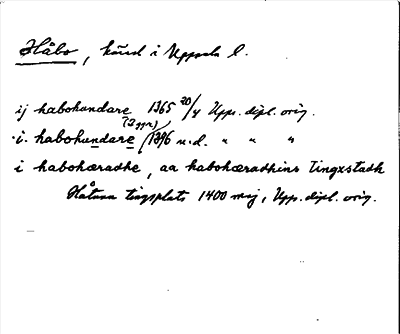 Håbo, härad i Uppsala l.
ij habohundare 1365 20/4 Upps. dipl. orig.
(2 ggr)
i habohundare 1396 u.d. " " "
i habohæradhe, aa habohæradhins tingxstadh
Håtuna tingsplats 1400 maj, Upp. dipl. orig.